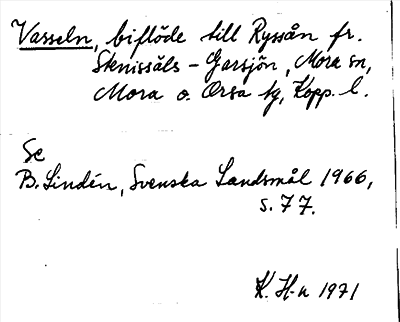 Vasseln, biflöde till Ryssån fr.
Stenissåls - Garsjön, Mora sn,
Mora o. Orsa tg, Kopp. l.
Se
B. Lindén, Svenska Landsmål 1966,
s. 77.
K. H-n 1971